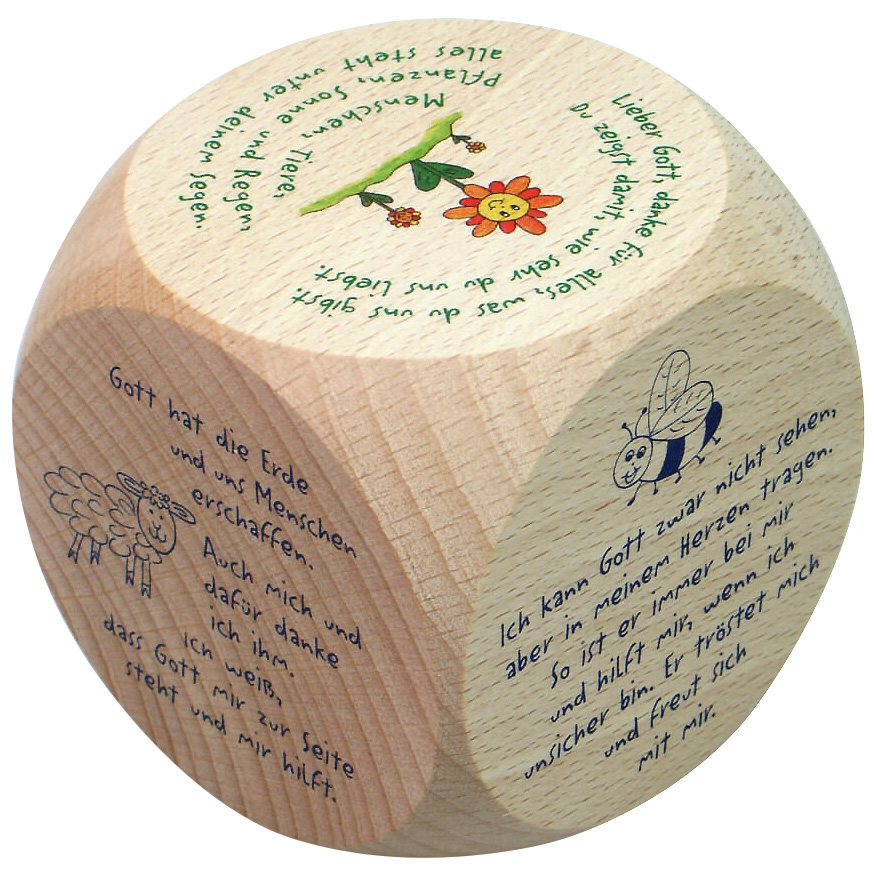 Lieber Gott danke für alles, was du uns gibst.
Du zeigst damit, wie sehr du uns liebst.
Menschen, Tiere,
Pflanzen, Sonne und Regen,
alles steht unter deinem Segen.
Gott hat die Erde
und uns Menschen
erschaffen.
Auch mich und
dafür danke
ich ihm.
ich weiß,
dass Gott mir zur Seite
steht und mir hilft.
Ich kann Gott zwar nicht sehen,
aber in meinem Herzen tragen.
So ist er immer bei mir
und hilft mir, wenn ich
unsicher bin. Er tröstet mich
und freut sich
mit mir.